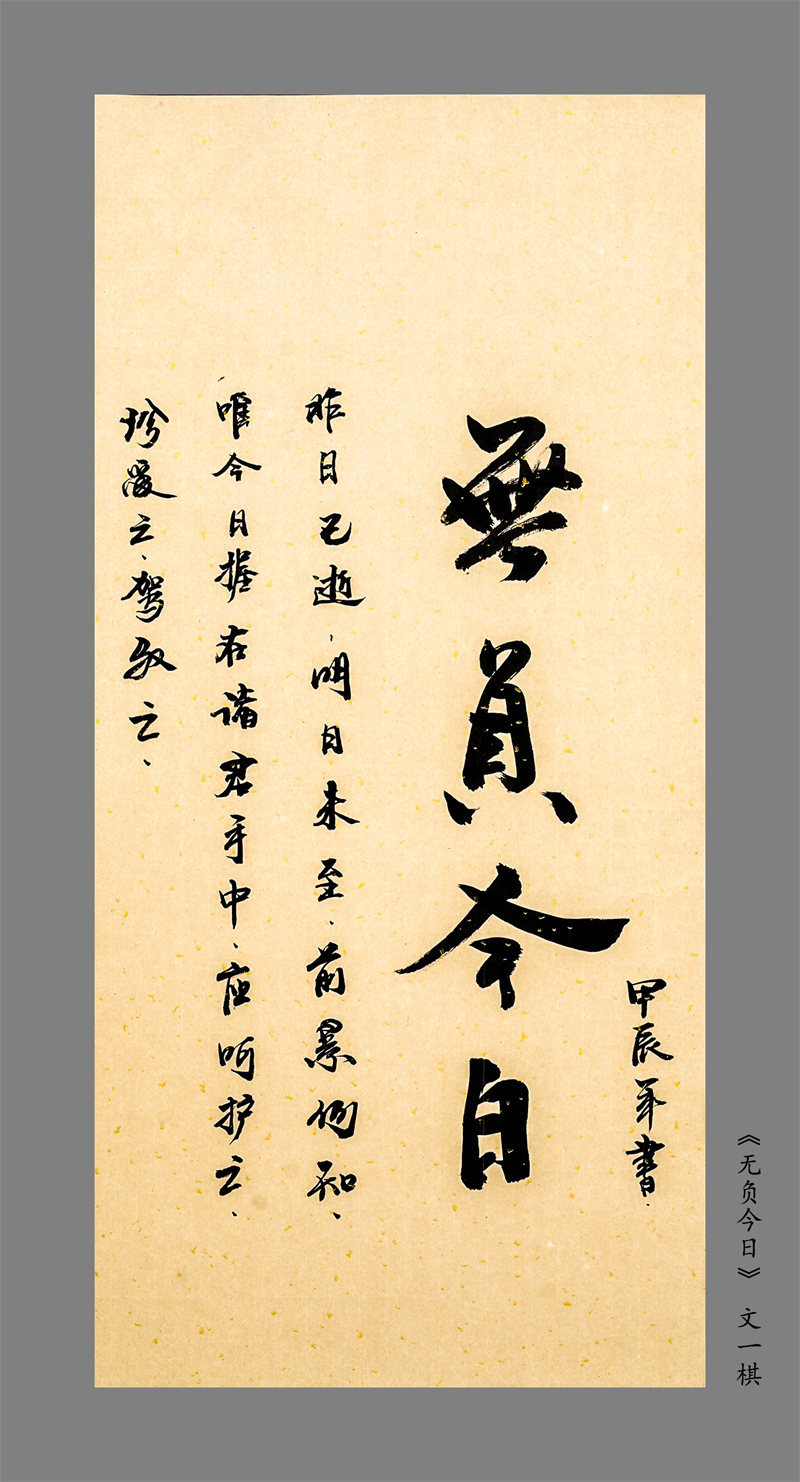 甲辰年書.
無負今日
昨日已逝、明日未至、前景何知、
唯今日握在诸君手中、应呵护之、
珍爱之、驾驭之、
《无负今日》 文一棋